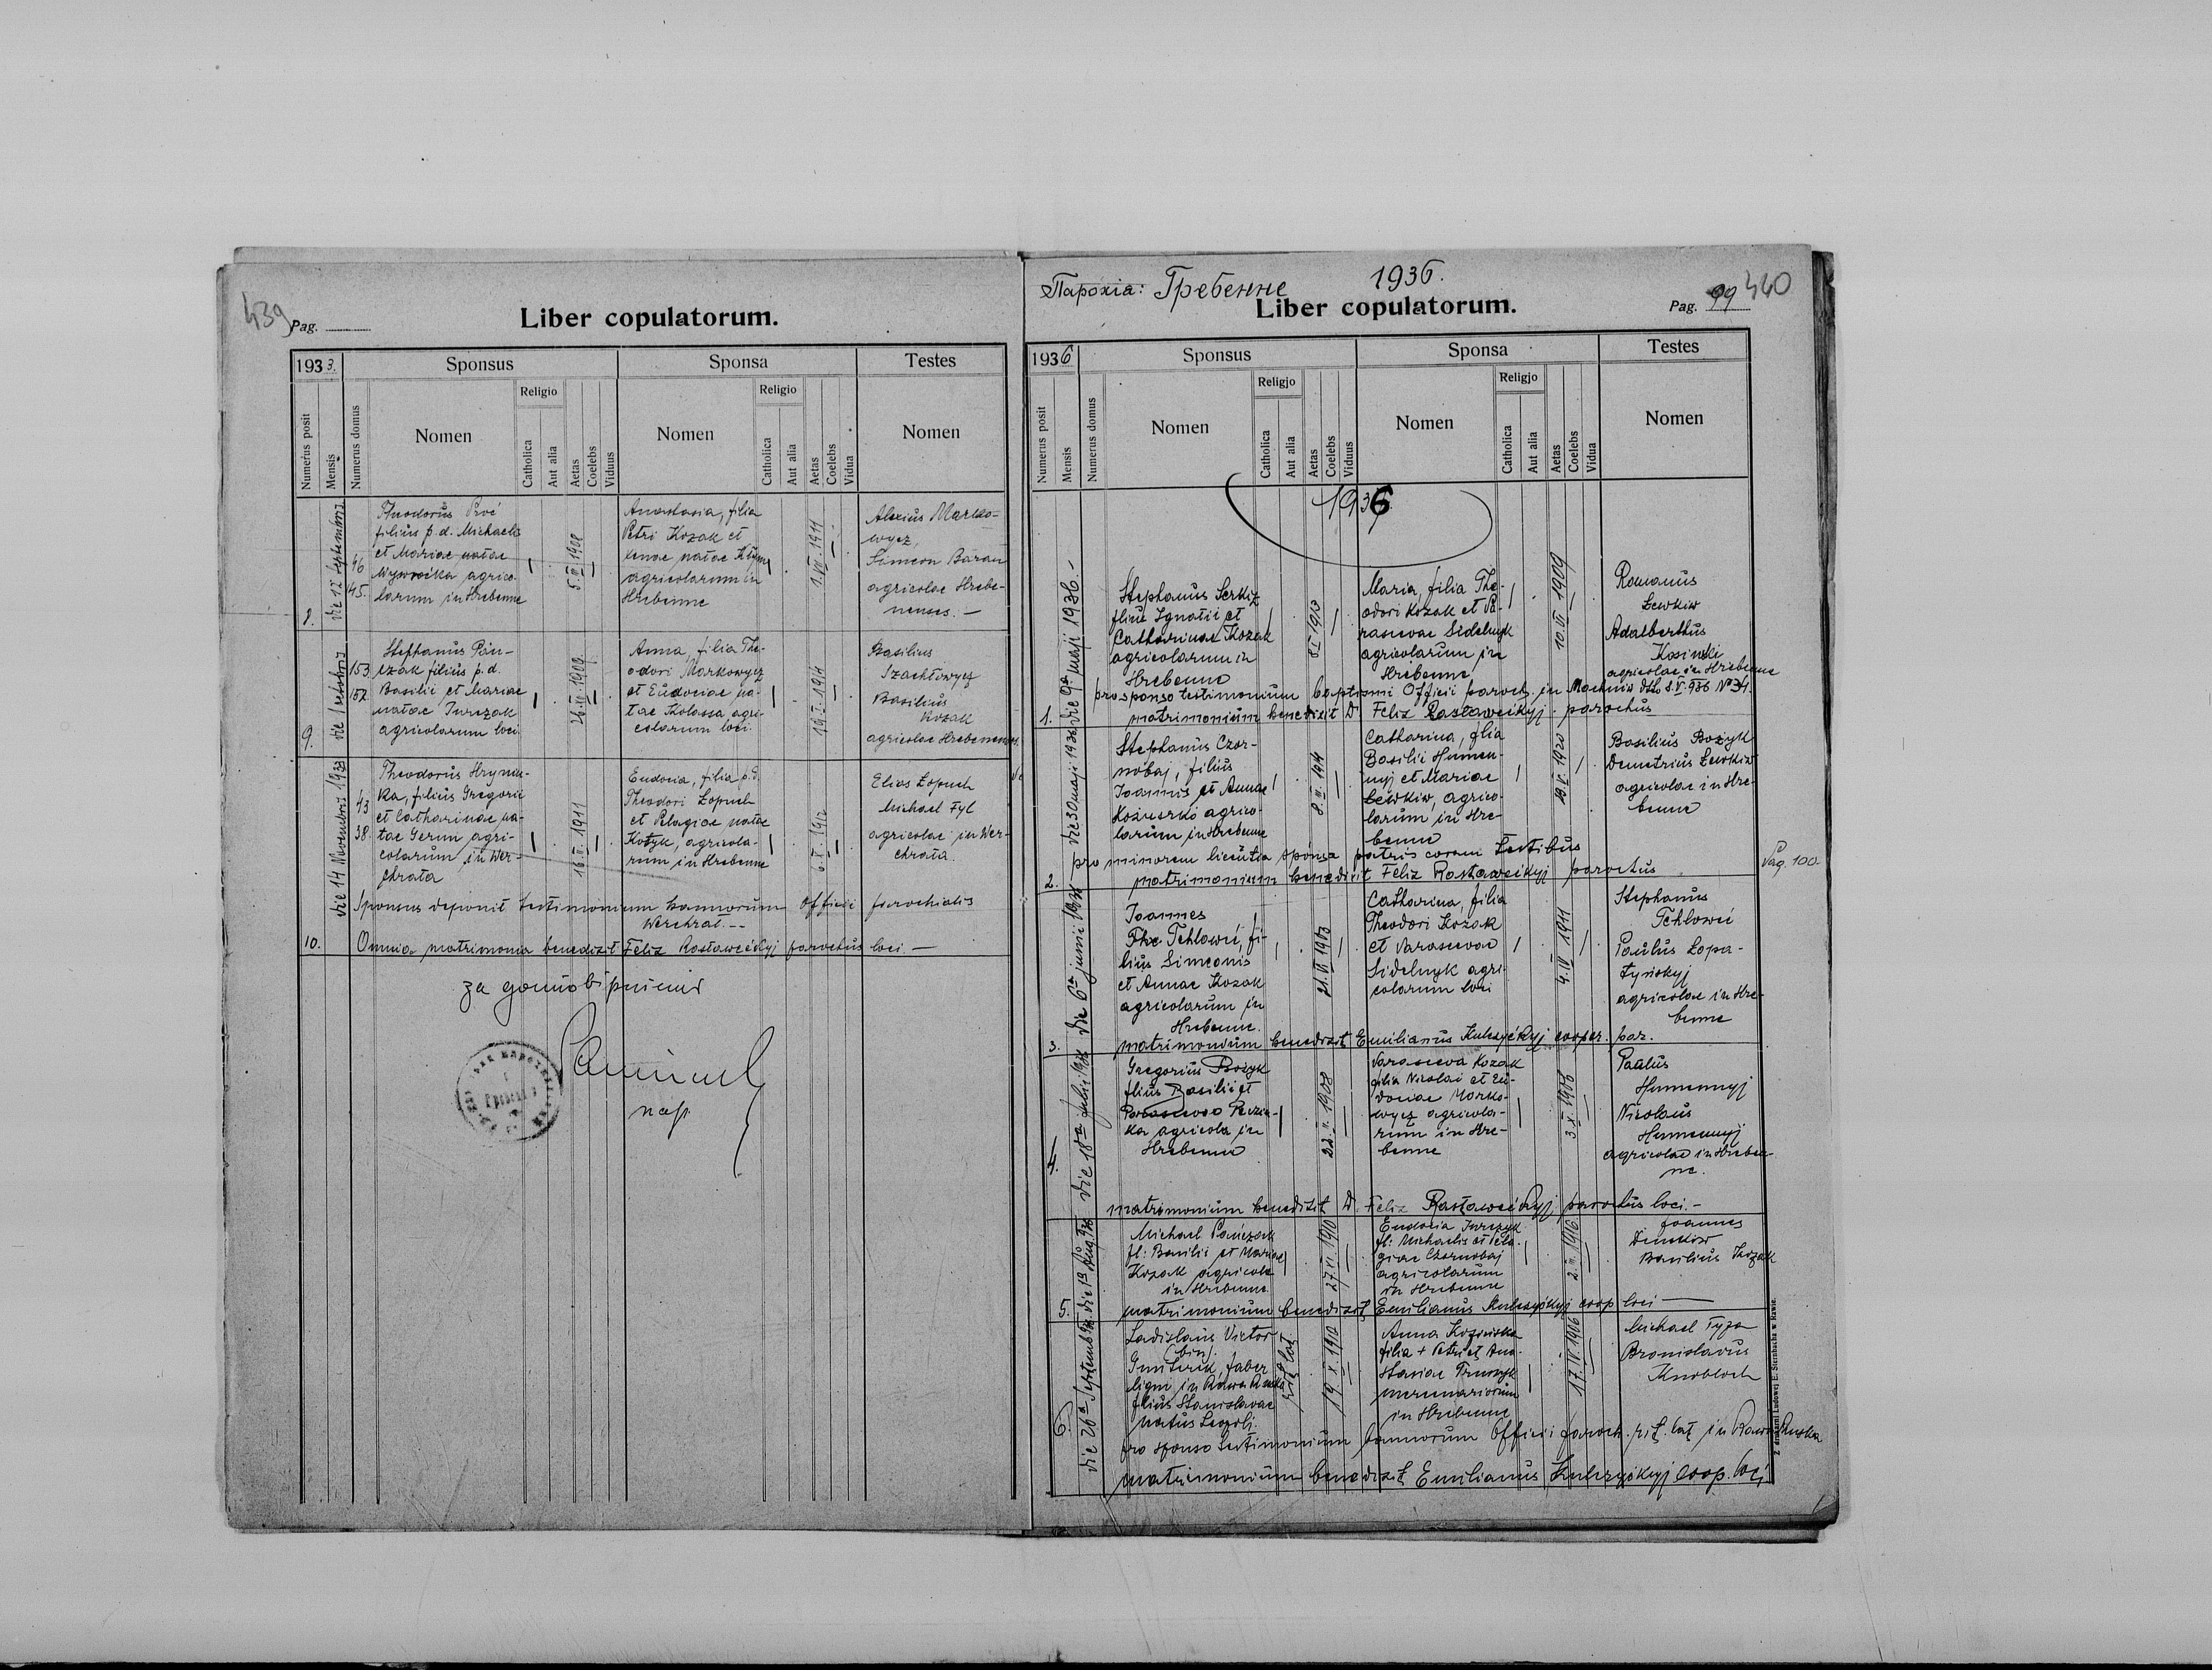 439
Pag.
Liber copulatorum.
1933.
Sponsus
Sponsa
Testes
Numerus posit
Mensis
Numerus domus
Nomen
Religio
Catholica
Aut alia
Aetas
Coelebs
Viduus
Nomen
Religio
Catholica
Aut alia
Aetas
Coelebs
Vidua
Nomen
8.
die 12 Septembris
46
45.
Theodorus
filius p. d. Michaelis
et Mariae natae
agrico-
larum in Hrebenne
1908
Anastasia, filia
Petri Kozak et
natae
agricolarum in
Hrebenne
1.VII.1911
Alexius Marko-
wycz,
Simeon Baran
agricolae Hrebe-
nenses. —
9.
die 1 octobris
153
152
Stephanus Pan-
czak filius p. d.
Basilii et Mariae
natae Jurczak
agricolarum loci.
1909
Anna, filia The-
odori Markowycz
et Eudociae na-
tae Kolassa agri-
colarum loci.
19.I.1914
Basilius
Basilius
Kozak
agricolae Hrebenenses.
10.
die 14 Novembris 1933
43
38.
Theodorus Hryniu-
ka, filius Gregorii
et Catharinae na-
tae Gerun agri-
colarum in Wer-
chrata
16.II.1911
Eudocia, filia p. d.
Theodori Łopuch
et Pelagiae natae
Kotyk, agricola-
rum in Hrebenne
6.X.1912
Elias Łopuch
Michael Fyl
agricolae in Wer-
chrata.
Sponsus deponit testimonium bannorum officii parochialis
Werchrat. --
Omnia matrimonia benedixit Felix Rostaweckyj parochus loci. —
1936.
Парохія: Гребенне
Liber copulatorum.
Pag. 99
440
1936
Sponsus
Sponsa
Testes
Numerus posit
Mensis
Numerus domus
Nomen
Religjo
Catholica
Aut alia
Aetas
Coelebs
Viduus
Nomen
Religjo
Catholica
Aut alia
Aetas
Coelebs
Vidua
Nomen
1936
1.
die 9a maji 1936. —
Stephanus Serkiz
filius Ignatii et
Catharinae Kozak
agricolarum in
Hrebenne
8.I.1913
Maria, filia The-
odori Kozak et Pa-
rascevae Sidelnyk
agricolarum in
Hrebenne
10.VI.1909
Romanus
Lewkiw
Adalberthus
Kosinski
agricolae in Hrebenne
pro sponso testimonium baptismi Officii paroch. in
matrimonium benedixit D. Felix Rostaweckyj parochus
2.
die 30 maji 1936
Stephanus Czor-
nobaj, filius
Joannis et Annae
agrico-
larum in Hrebenne
8.II.1914
Catharina, filia
Basilii Humen-
nyj et Mariae
Lewkiw, agrico-
larum in Hre-
benne
19.V.1920
Basilius Bożyk
Demetrius Lewkiw
agricolae in Hre-
benne
pro minorem licentia sponsa patris coram testibus
matrimonium benedixit Felix Rostaweckyj parochus
Pag. 100
3.
die 6a junii 1936
Joannes
Tchlowci, fi-
lius Simeonis
et Annae Kozak
agricolarum in
Hrebenne.
21.VI.1913
Catharina, filia
Theodori Kozak
et Parascevae
Sidelnyk agri-
colarum loci
4.IV.1911
Stephanus
Tchlowci
Paulus Łopa-
tynskyj
agricolae in Hre-
benne
matrimonium benedixit Emilianus Kulczyckyj cooper. par.
4.
die 18a julii 1936
Gregorius Bożyk
filius Basilii et
Parasceva
agricola in
Hrebenne
22.II.1908
Parasceva Kozak
filia Nicolai et Eu-
dociae Marko-
wycz agricola-
rum in Hre-
benne
3.X.1906
Paulus
Humennyj
Nicolaus
Humennyj
agricolae in Hreben-
ne.
matrimonium benedixit D. Felix Rostaweckyj parochus loci. —
5.
die 1a Aug. 936
Michael Pańczak
fil: Basilii et Mariae
Kozak agricola
in Hrebenne
27.VI.1910
Eudocia Jurczyk
fil: Michaelis et Pela-
giae Czornobaj
agricolarum
in Hrebenne
2.III.1916
Joannes
Basilius Kozak
matrimonium benedixit Emilianus Kulczyckyj coop loci —
6
die 26a Septembris
Ladislaus Victor
(bin.)
faber
ligni in Rawa Ruska
filius Stanislavae
natus Leopoli.
rit. lat.
19.X.1910
Anna Kozińska
filia + Petri et Ana-
stasiae
mercenariorum
in Hrebenne
17.IV.1906
Michael Tyza
Bronislavus
Knobloch
pro sponso testimonium bannorum Officii paroch. rit. lat in Rawa Ruska
matrimonium benedixit Emilianus Kulczyckyj Coop. loci
Z drukarni Ludowej E. Sternbacha w Rawie.